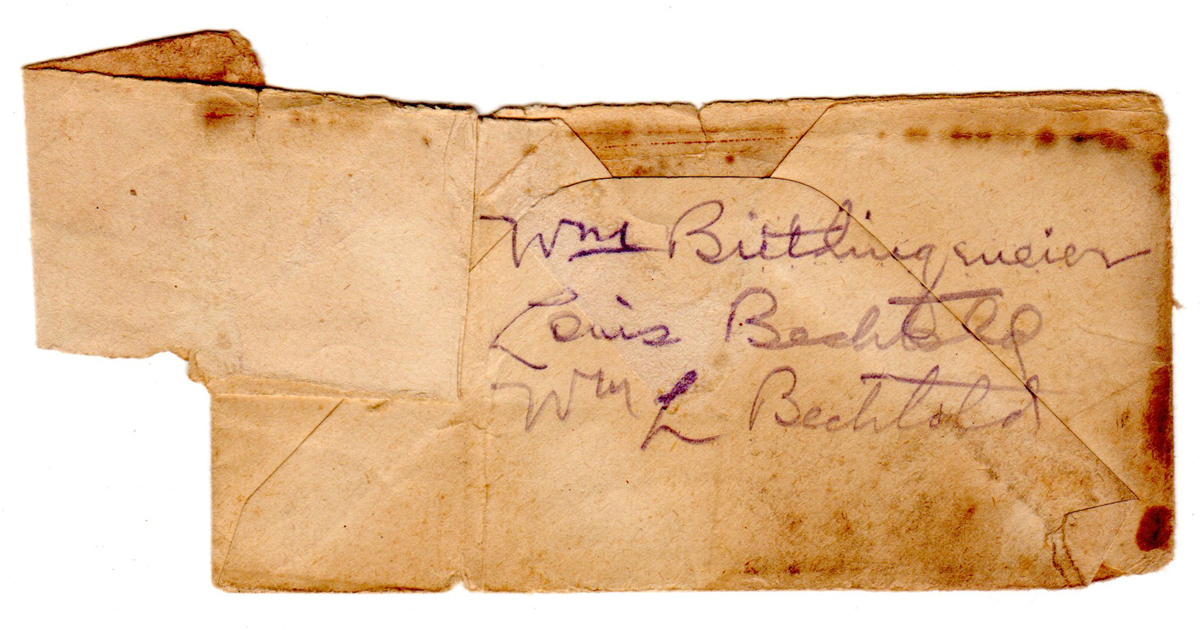 Wm Bittlingmeier
Louis Bechtold
Wm L Bechtold